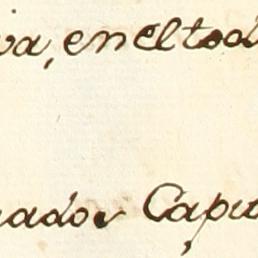 va, en el tod
nados Capit